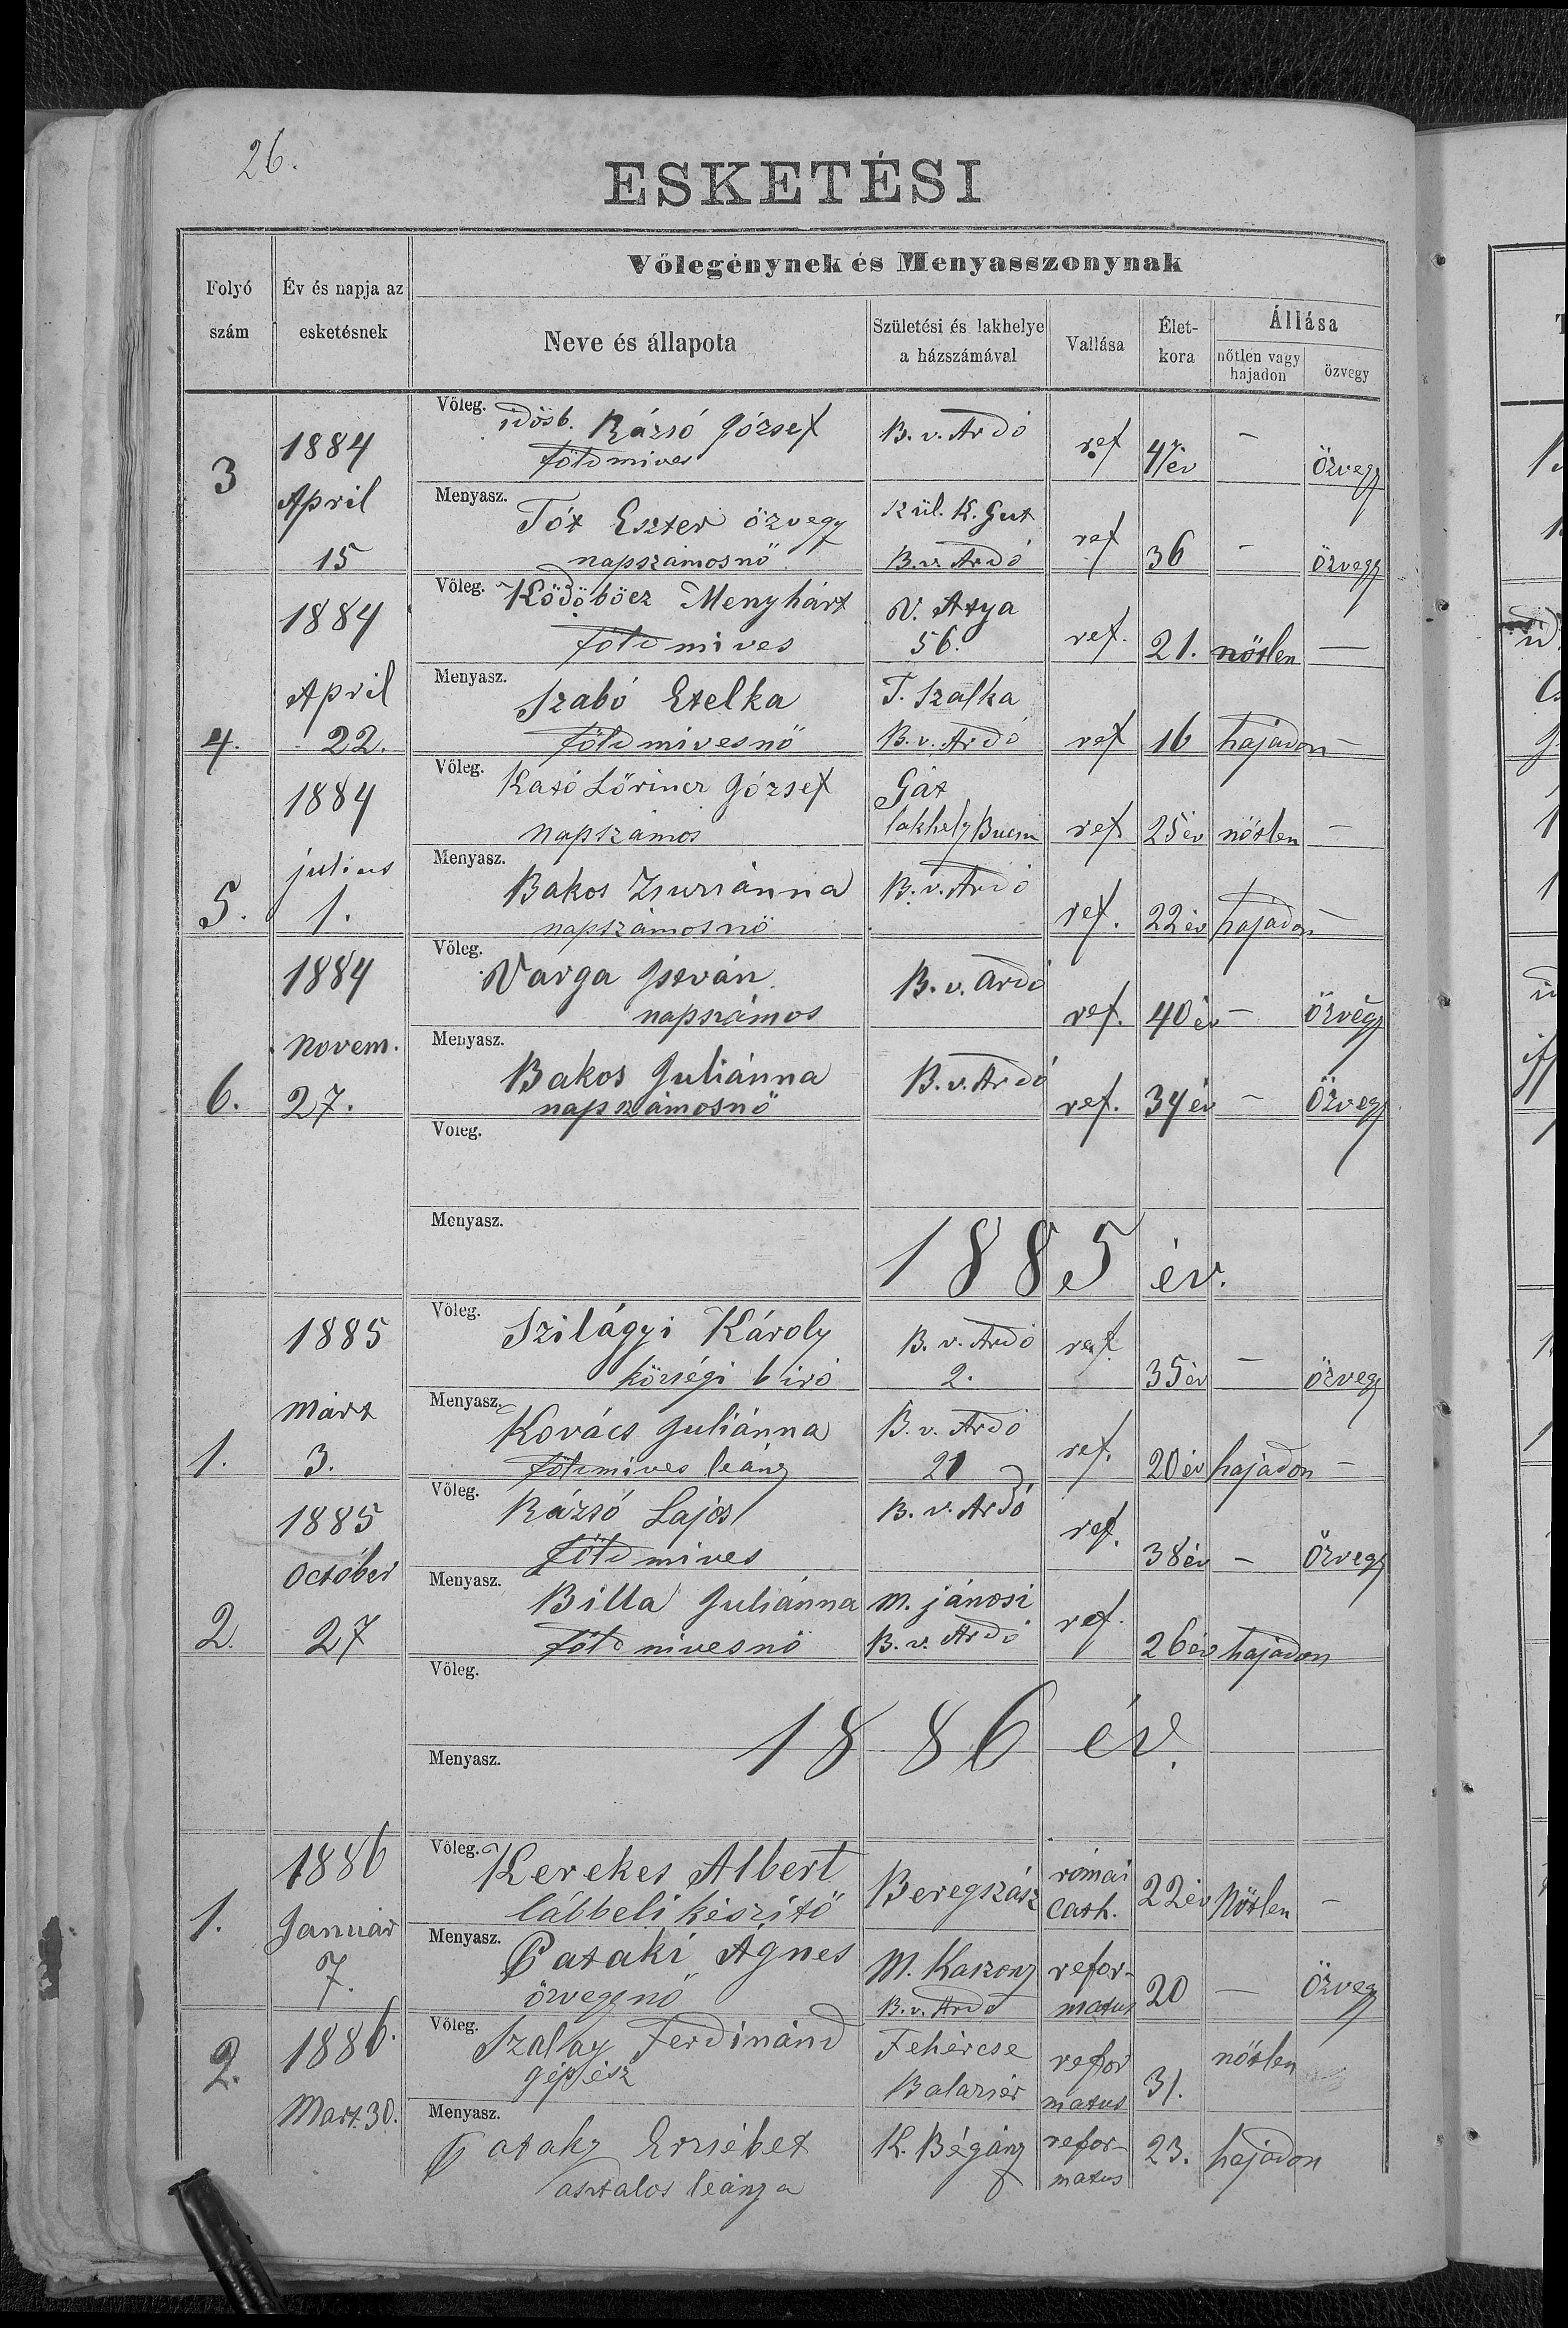 26.
ESKETÉSI
Folyó szám
Év és napja az esketésnek
Vőlegénynek és Menyasszonynak
Neve és állapota
Születési és lakhelye a házszámával
Vallása
Élet-kora
Állása
nőtlen vagy hajadon
özvegy
3
1884 April 15
Vőleg. idősb. Rázsó József B. v. Ardó ref 47 év – özvegy
földmives
Menyasz. Tót Eszter özvegy szül. K. Gut ref 36 – özvegy
napszámosnő B. v. Ardó
4.
1884 April 22.
Vőleg. Ködöböcz Menyhárt V. Atya ref. 21. nőtlen –
földmives 56.
Menyasz. Szabó Etelka T. Szalka ref 16 hajadon –
földmivesnő B. v. Ardó
5.
1884 julius 1.
Vőleg. Kató Lőrincz József Gát ref 25 év nőtlen –
napszámos lakhely Bucsu
Menyasz. Bakos Zsuzsánna B. v. Ardó ref. 22 év hajadon –
napszámosnő
6.
1884 Novem. 27.
Vőleg. Varga István B. v. Ardó ref. 40 év – özvegy
napszámos
Menyasz. Bakos Juliánna B. v. Ardó ref. 34 év – Özvegy
napszámosnő
Vőleg.
Menyasz.
1885 év.
1.
1885 Márt 3.
Vőleg. Szilágyi Károly B. v. Ardó ref. 35 év – özvegy
községi biró 2.
Menyasz. Kovács Juliánna B. v. Ardó ref. 20 év hajadon –
földmives leány 21
2.
1885 October 27
Vőleg. Rázsó Lajos B. v. Ardó ref. 38 év – Özvegy
földmives
Menyasz. Billa Juliánna M. jánosi ref. 26 év hajadon
földmivesnő B. v. Ardó
Vőleg.
Menyasz.
1886 év.
1.
1886 Január 7.
Vőleg. Kerekes Albert Beregszász római cath. 22 év Nőtlen –
lábbeli készítő
Menyasz. Pataki Ágnes M. Kaszony refor-matus 20 – Özvegy
özvegynő B. v. Ardó
2.
1886. Mart. 30.
Vőleg. Szalay Ferdinánd Fehércse refor matus 31. nőtlen
gépész
Menyasz. Pataky Erzsébet K. Bégány refor-matus 23. hajadon
asztalos leánya